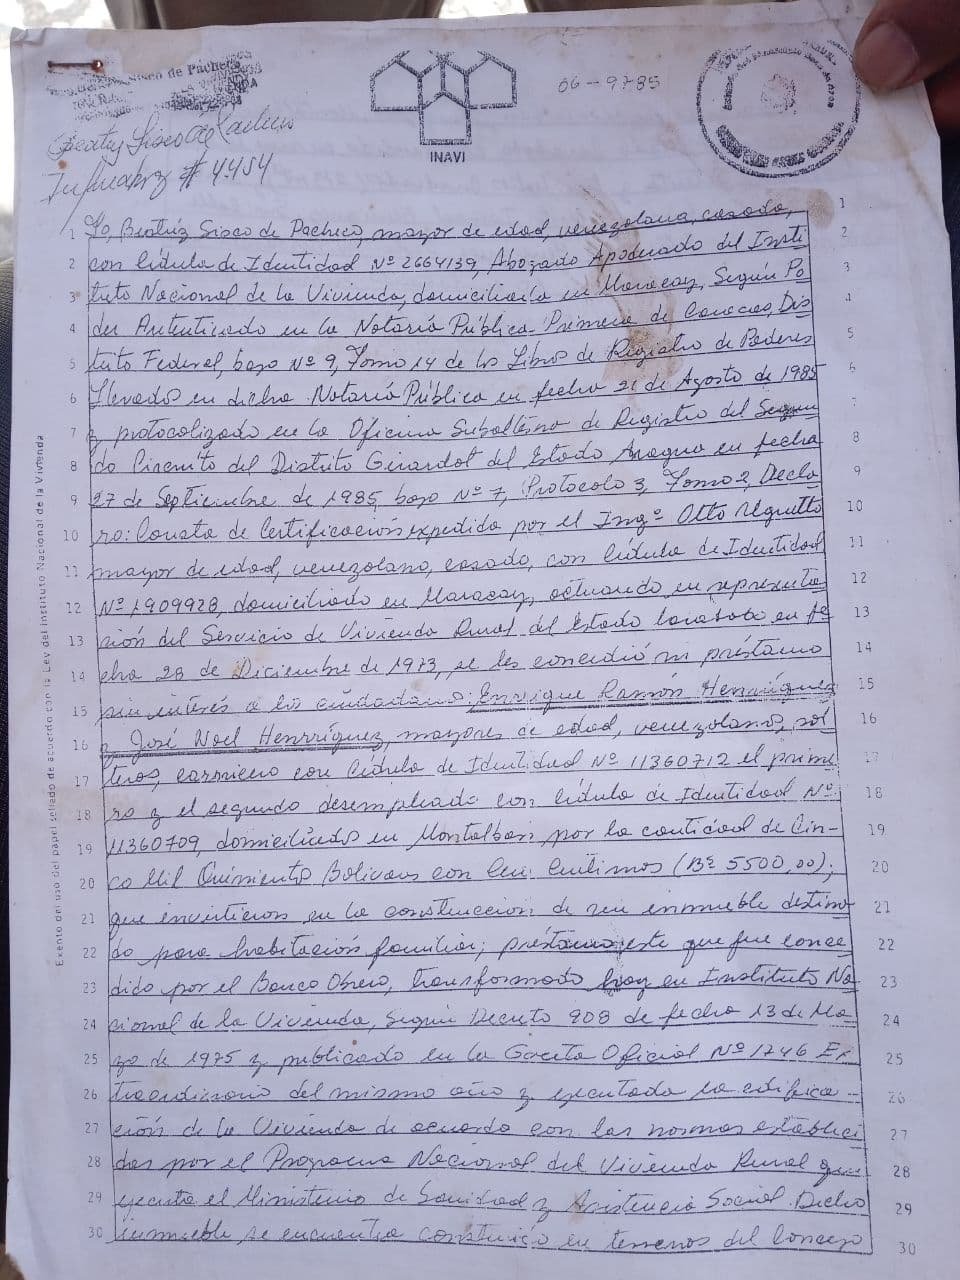 Sisco de Pacheco
Beatriz Sisco de Pacheco
Inpreabog # 4.454
INAVI
06-9785
Exento del uso del papel sellado de acuerdo con la Ley del Instituto Nacional de la Vivienda
1 Yo, Beatriz Sisco de Pacheco, mayor de edad, venezolana, casada, 1
2 con Cédula de Identidad Nº 2664139, Abogado Apoderado del Insti 2
3 tuto Nacional de la Vivienda, domiciliada en Maracay, Según Po 3
4 der Autenticado en la Notaría Pública Primera de Caracas, Dis 4
5 trito Federal, bajo Nº 9, Tomo 14 de los Libros de Registro de Poderes 5
6 llevados en dicha Notaría Pública en fecha 21 de Agosto de 1985 6
7 y protocolizado en la Oficina Subalterna de Registro del Segun 7
8 do Circuito del Distrito Girardot del Estado Aragua en fecha 8
9 27 de Septiembre de 1985, bajo Nº 7, Protocolo 3, Tomo 2, Decla 9
10 ro: Consta de Certificación expedida por el Ingº Otto 10
11 mayor de edad, venezolano, casado, con Cédula de Identidad 11
12 Nº 1909928, domiciliado en Maracay, actuando en representa 12
13 ción del Servicio de Vivienda Rural del Estado Carabobo en fe 13
14 cha 28 de Diciembre de 1973, se les concedió un préstamo 14
15 sin interés a los ciudadanos: Enrique Ramón Henrríquez 15
16 y José Noel Henrríquez, mayores de edad, venezolanos, sol 16
17 teros, carnicero con Cédula de Identidad Nº 11360712 el prime 17
18 ro y el segundo desempleado con Cédula de Identidad Nº 18
19 11360709, domiciliados en Montalban por la cantidad de Cin- 19
20 co Mil Quinientos Bolivares con Cero Centimos (Bs 5500,00); 20
21 que invirtieron en la construccion de un inmueble destina 21
22 do para habitación familiar; préstamo este que fue conce 22
23 dido por el Banco Obrero, transformado hoy en Instituto Na 23
24 cional de la Vivienda, Según Decreto 908 de fecha 13 de Ma 24
25 yo de 1975 y publicado en la Gaceta Oficial Nº 1746 Ex 25
26 traordinario del mismo año y ejecutada la edifica- 26
27 ción de la Vivienda de acuerdo con las normas estableci 27
28 das por el Programa Nacional del Vivienda Rural que 28
29 ejecuta el Ministerio de Sanidad y Asistencia Social. Dicho 29
30 inmueble se encuentra construido en terrenos del Concejo 30